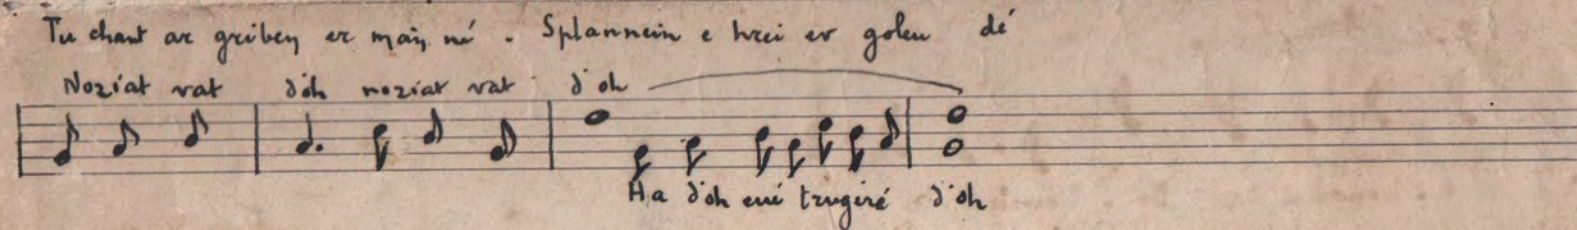 Tu chant ar griben er mañ né. Splannein e hrei er goleu dé
Noziat vat d'oh noziat vat d'oh
Ha d'oh eué trugéré d'oh